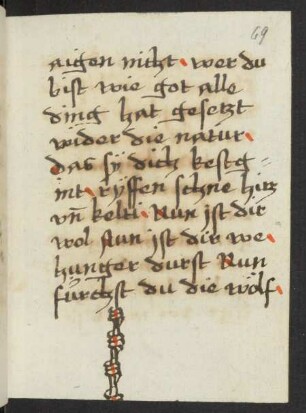 69
aigen nicht. wer du
bist wie got alle
ding hat gesetzt
wider die natur.
das sÿ dich kestg=
int. rÿffen schne hitz
vn̄ kelti. Nun ist dir
wol Nun ist dir we.
hunger durst Nun
fürchst du die wölf.